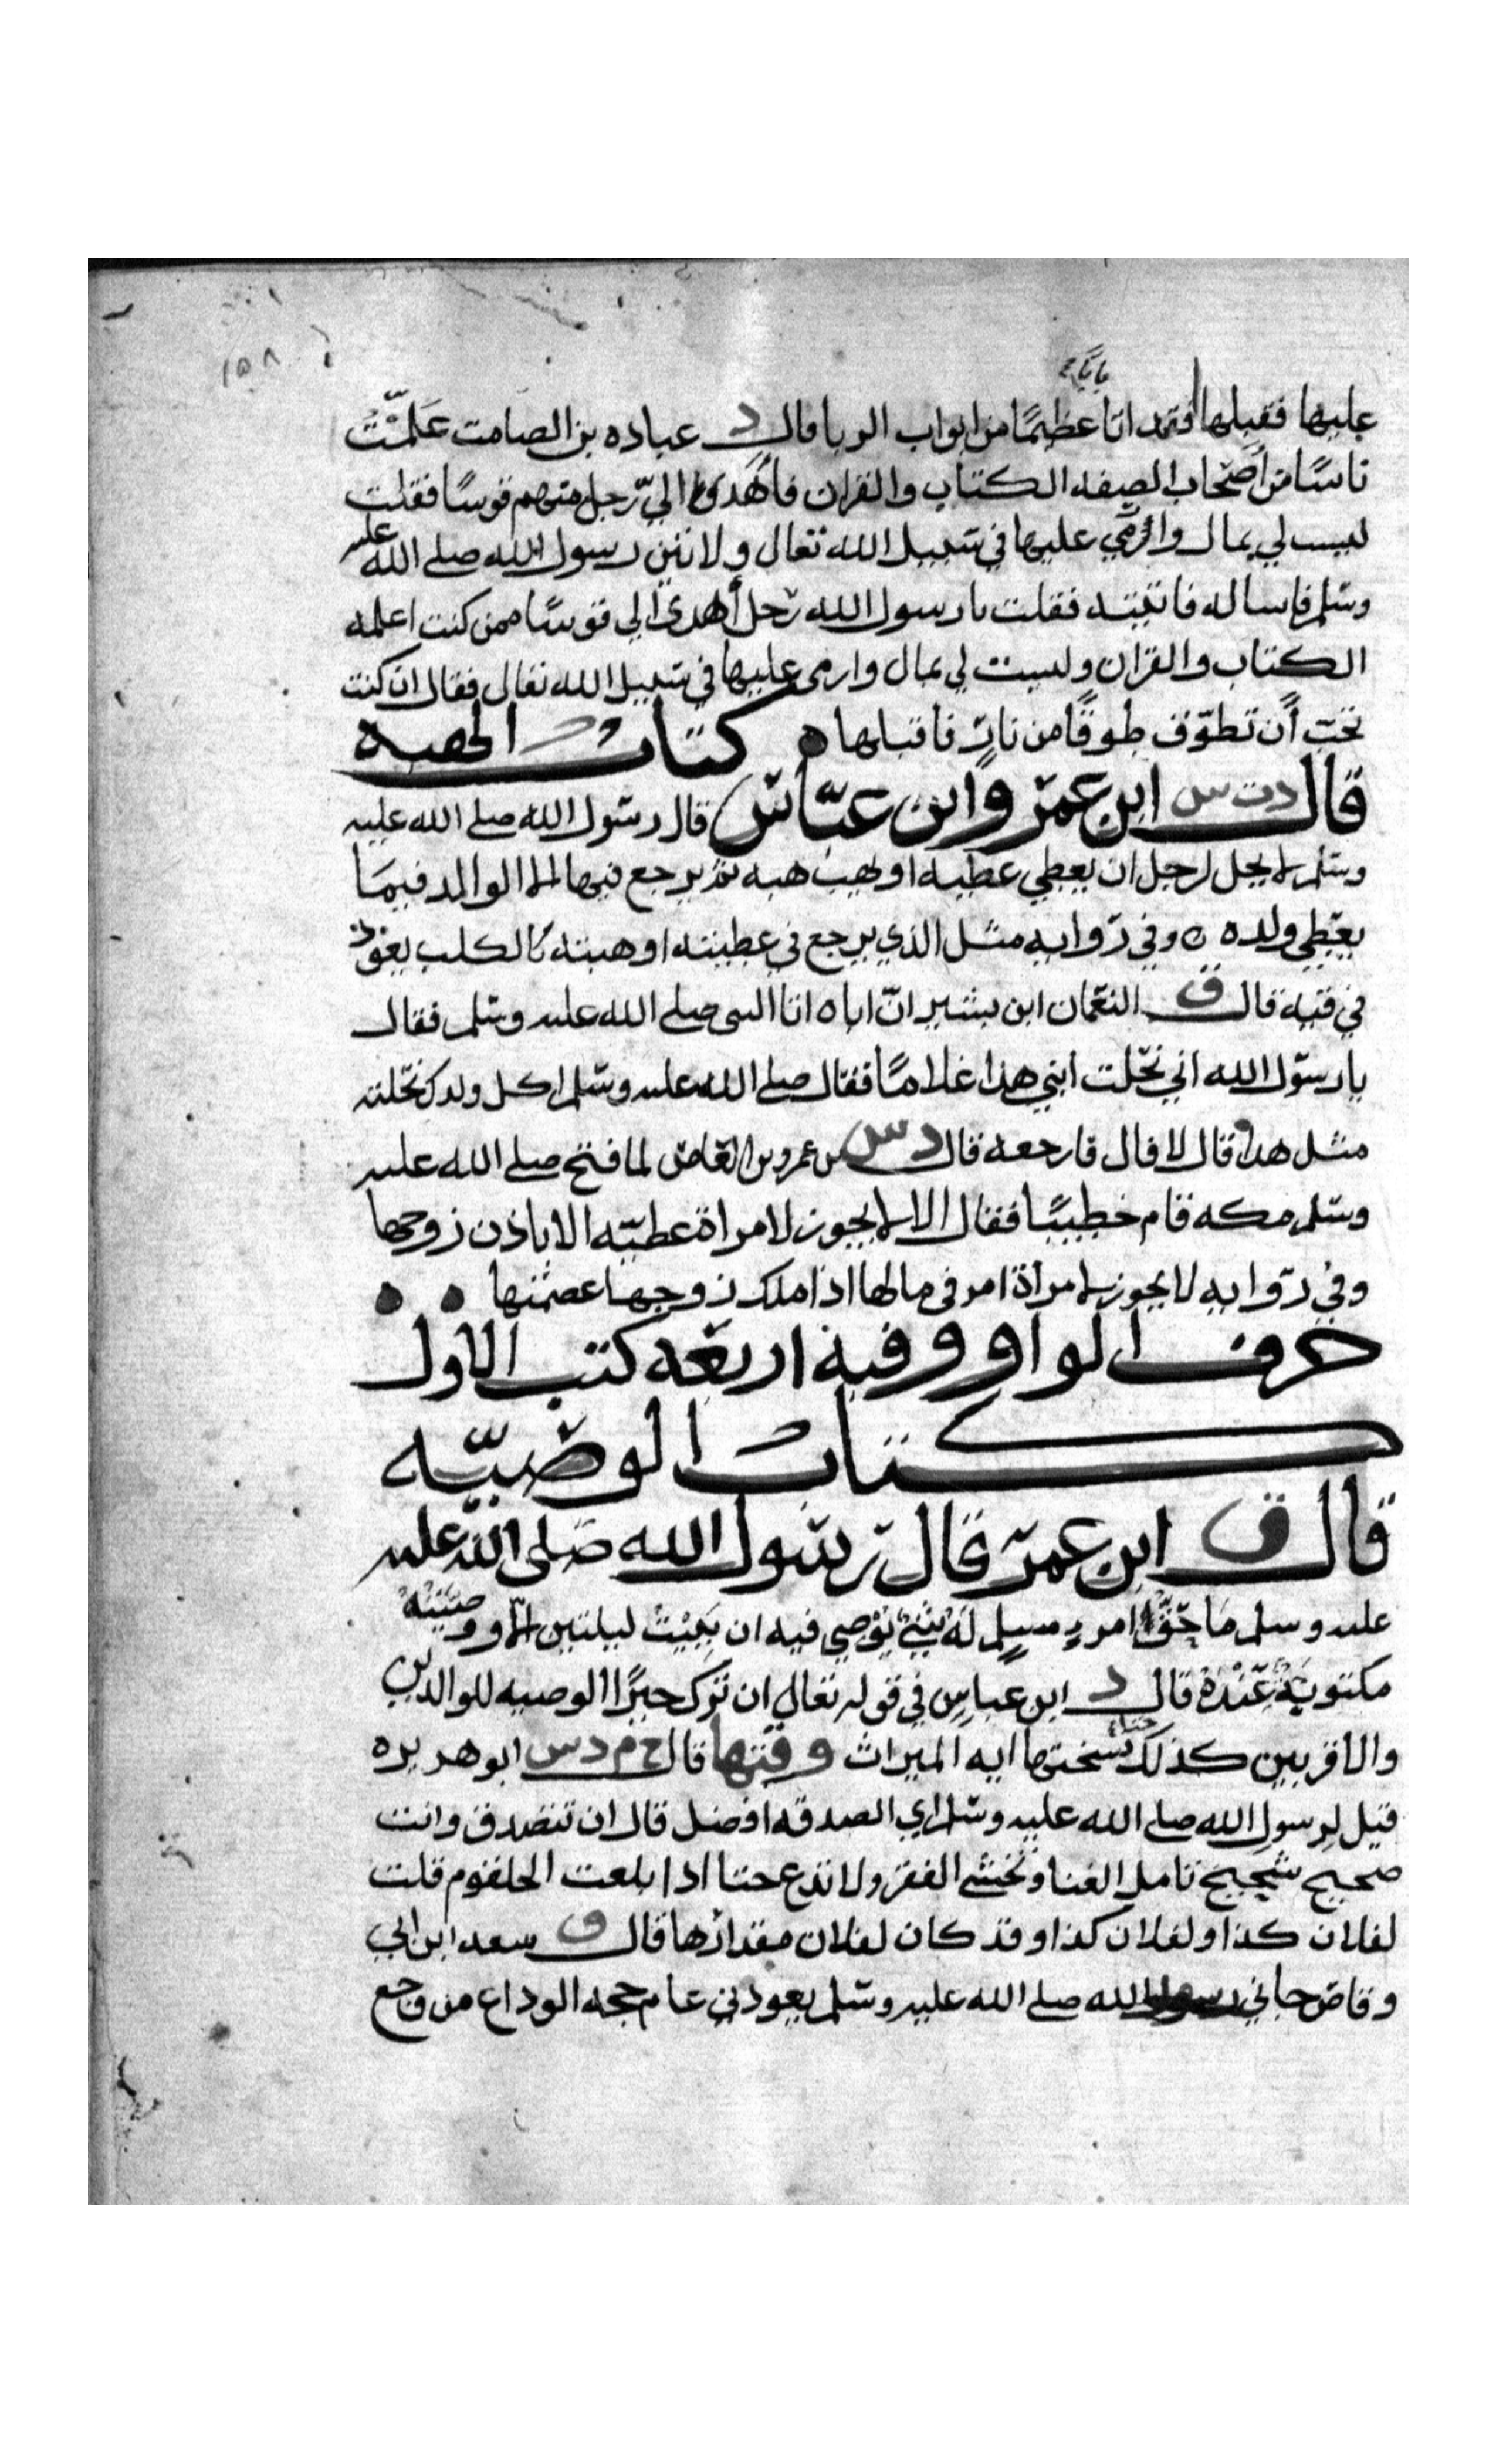 ١٥٨
بابًا
عليها فقبلها فقد اتا عظيمًا من ابواب الربا قال د عباده بن الصامت عَلَّمْتُ
ناسًا من أصحاب الصفه الكتاب والقران فأهدى اليّ رجل منهم قوسًا فقلت
ليست لي بمال وارمي عليها في سبيل الله تعالى ولاتين رسول الله صلى الله عليه
وسلم فاساله فاتيته فقلت يا رسول الله رجل أهدى الي قوسًا ممن كنت اعلمه
الكتاب والقران وليست لي بمال وارمى عليها في سبيل الله تعالى فقال ان كنت
تحب أن تطوّق طوقًا من نار فاقبلها كتاب الهبه
قال د ت س ابن عمر وابن عباس قال رسول الله صلى الله عليه
وسلم لا يحل لرجل ان يعطي عطيه او يهب هبه ثم يرجع فيها الا الوالد فيما
يعطي ولده وفي روايه مثل الذي يرجع في عطيته او هبته كالكلب يعود
في قيه قال ق النعمان ابن بشير انّ اباه اتا النبى صلى الله عليه وسلم فقال
يا رسول الله اني نحلت ابني هذا غلامًا فقال صلى الله عليه وسلم اكل ولدك نحلته
مثل هذا قال لا قال فارجعه قال د س بن عمرو بن العاص لما فتح صلى الله عليه
وسلم مكه قام خطيبًا فقال الا لا يجوز لامراة عطيّه الا باذن زوجها
وفي روايه لا يجوز لامرأة امر فى مالها اذا ملك زوجها عصمتها
حرف الواو وفيه اربعه كتب الاول
كتاب الوصيّه
قال ق ابن عمر قال رسول الله صلى الله عليه
عليه وسلم ما حقّ امرءٍ مسلم له شيء يوصي فيه ان يبيت ليلتين الّا ووصيّته
مكتوبة عنده قال د ابن عباس في قوله تعالى ان ترك خيرًا الوصيه للوالدين
والاقربين كذلك حتا نسختها ايه الميراث وقتها قال خ م د س ابو هريره
قيل لرسول الله صلى الله عليه وسلم اي الصدقه افضل قال ان تتصدق وانت
صحيح شحيح تامل الغنا وتخشى الفقر ولا تدع حتا اذا بلغت الحلقوم قلت
لفلان كذا ولفلان كذا وقد كان لفلان مقدارها قال ق سعد ابن ابي
وقاص جاني رسول الله صلى الله عليه وسلم يعودني عام حجه الوداع من وجع